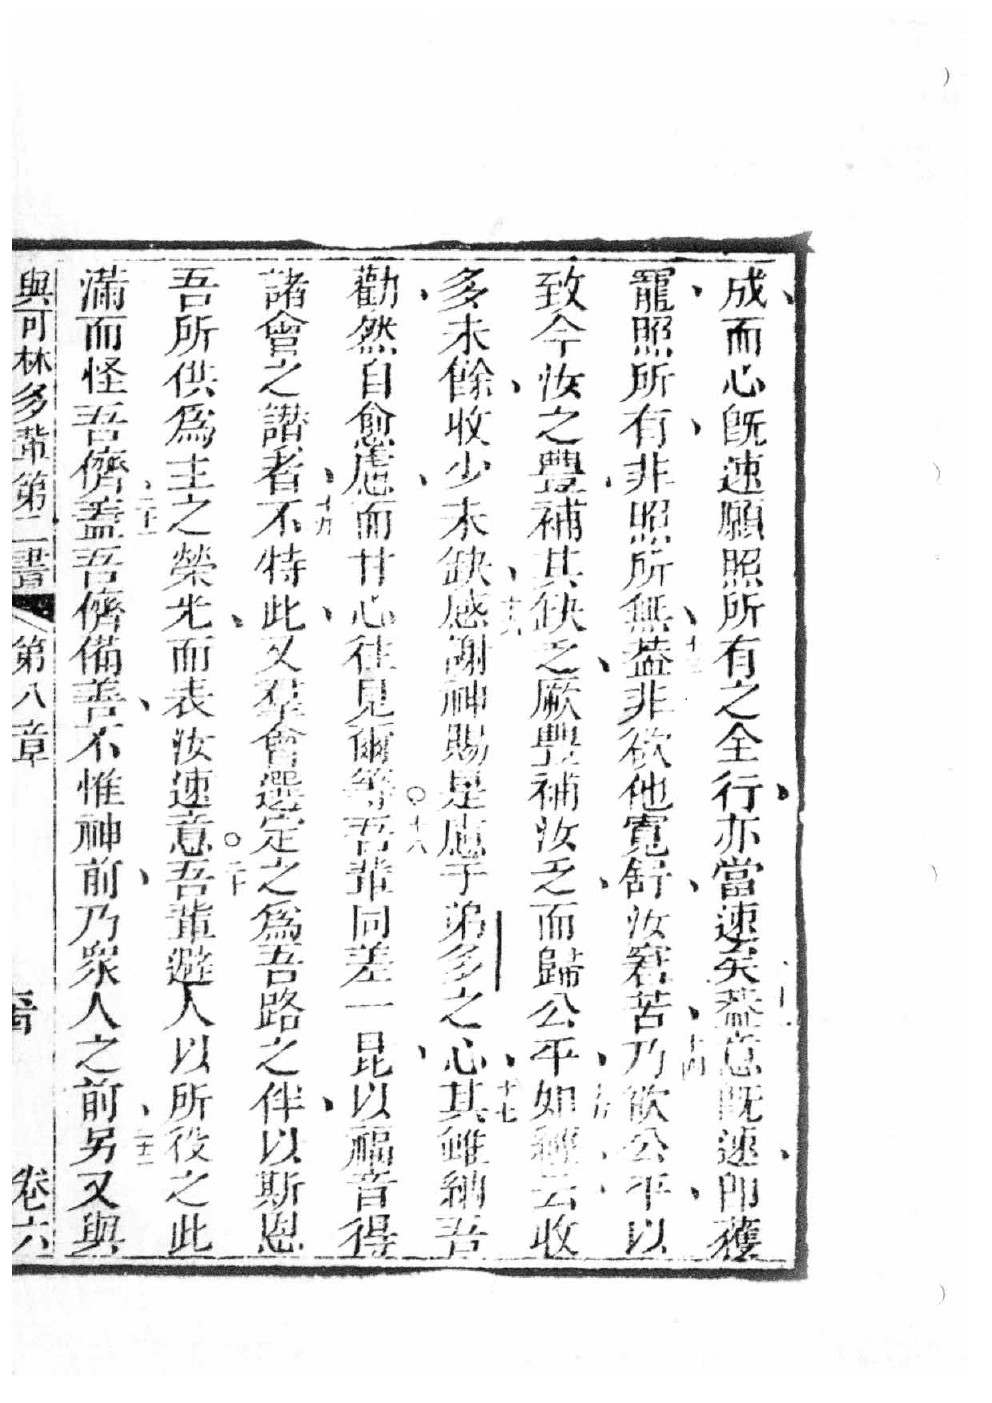 成而心旣速願照所有之全行亦當速矣蓋意旣速卽獲
寵照所有非照所無蓋非欲他寬舒汝窘苦乃欲公平以
致今汝之豐補其缺乏厥豐補汝乏而歸公平如經云收
多未餘收少未缺感謝神賜是慮于弟多之心其雖納吾
勸然自愈慮而甘心往見爾等吾輩同差一昆以福音得
諸會之讃者不特此又羣會選定之爲吾路之伴以斯恩
吾所供爲主之榮光而表汝速意吾輩避人以所役之此
滿而怪吾儕蓋吾儕備善不惟神前乃衆人之前另又與
與可林多輩第二書 第八章 卷六